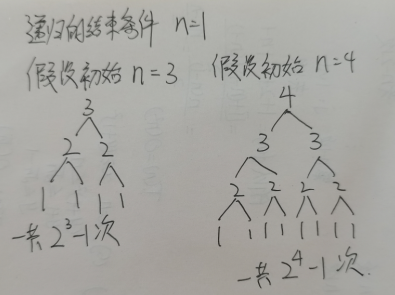 递归的结束条件 n=1
假设初始 n=3
3
2 2
1 1 1 1
一共 2³-1次
假设初始 n=4
4
3 3
2 2 2 2
1 1 1 1 1 1 1 1
一共 2⁴-1次.